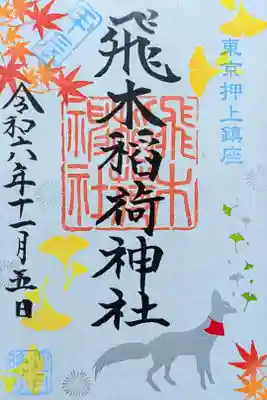 東京押上鎮座
飛木稲荷神社
飛木
稲荷
神社
令和六年十一月五日